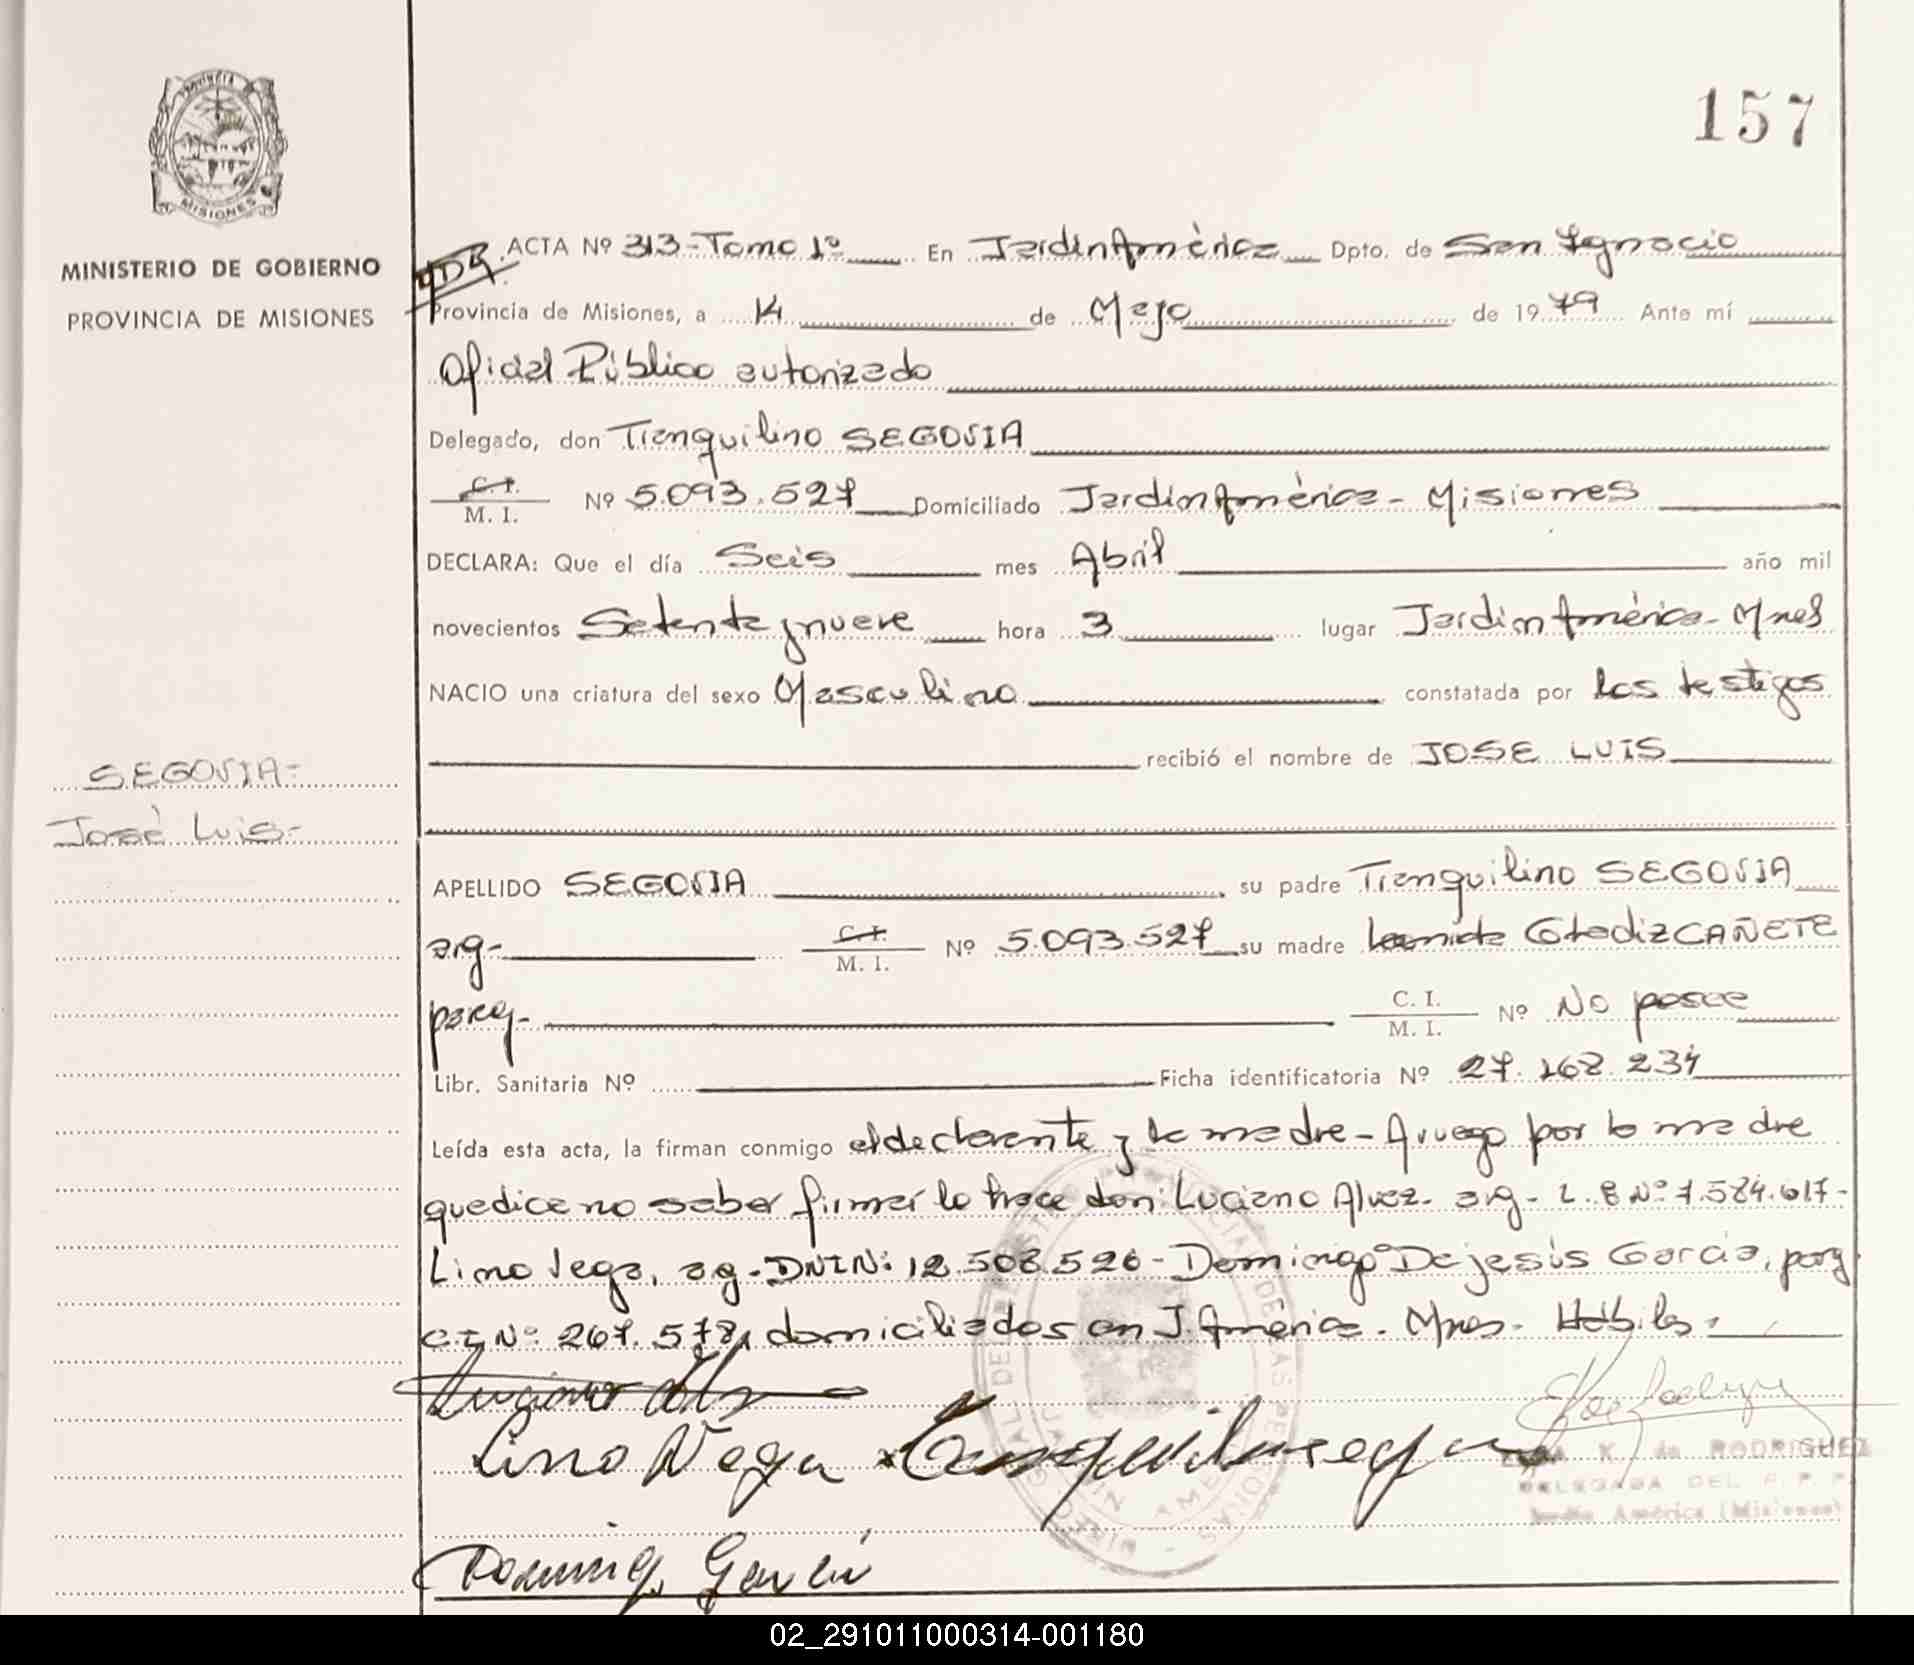 157
PROVINCIA
MISIONES
MINISTERIO DE GOBIERNO
PROVINCIA DE MISIONES
ACTA Nº 313-Tomo 1º En Jardín América Dpto. de San Ignacio
Provincia de Misiones, a 14 de Mayo de 1979 Ante mí
Oficial Público autorizado
Delegado, don Tranquilino SEGOVIA
C. I.
M. I. Nº 5.093.527 Domiciliado Jardín América - Misiones
DECLARA: Que el día Seis mes Abril año mil
novecientos Setenta y nueve hora 3 lugar Jardín América - Mnes
NACIO una criatura del sexo Masculino constatada por los testigos
recibió el nombre de JOSE LUIS
SEGOVIA-
José Luis-
APELLIDO SEGOVIA su padre Tranquilino SEGOVIA
arg- C. I.
M. I. Nº 5.093.527 su madre CAÑETE
parag- C. I.
M. I. Nº No posee
Libr. Sanitaria Nº Ficha identificatoria Nº 27.168.234
Leída esta acta, la firman conmigo el declarante y la madre - A ruego por la madre
que dice no saber firmar lo hace don: Luciano Alvez. arg- L. E Nº 7.584.617-
Lino Vega, ag. DNI Nº 12.508.526 - Domingo De jesús García, parg
C.I Nº 267.578, domiciliados en J. América. Mnes. Hábiles.
Lino Vega
K. de RODRIGUEZ
DELEGADA DEL R. P. P.
Jardín América (Misiones)
02_291011000314-001180